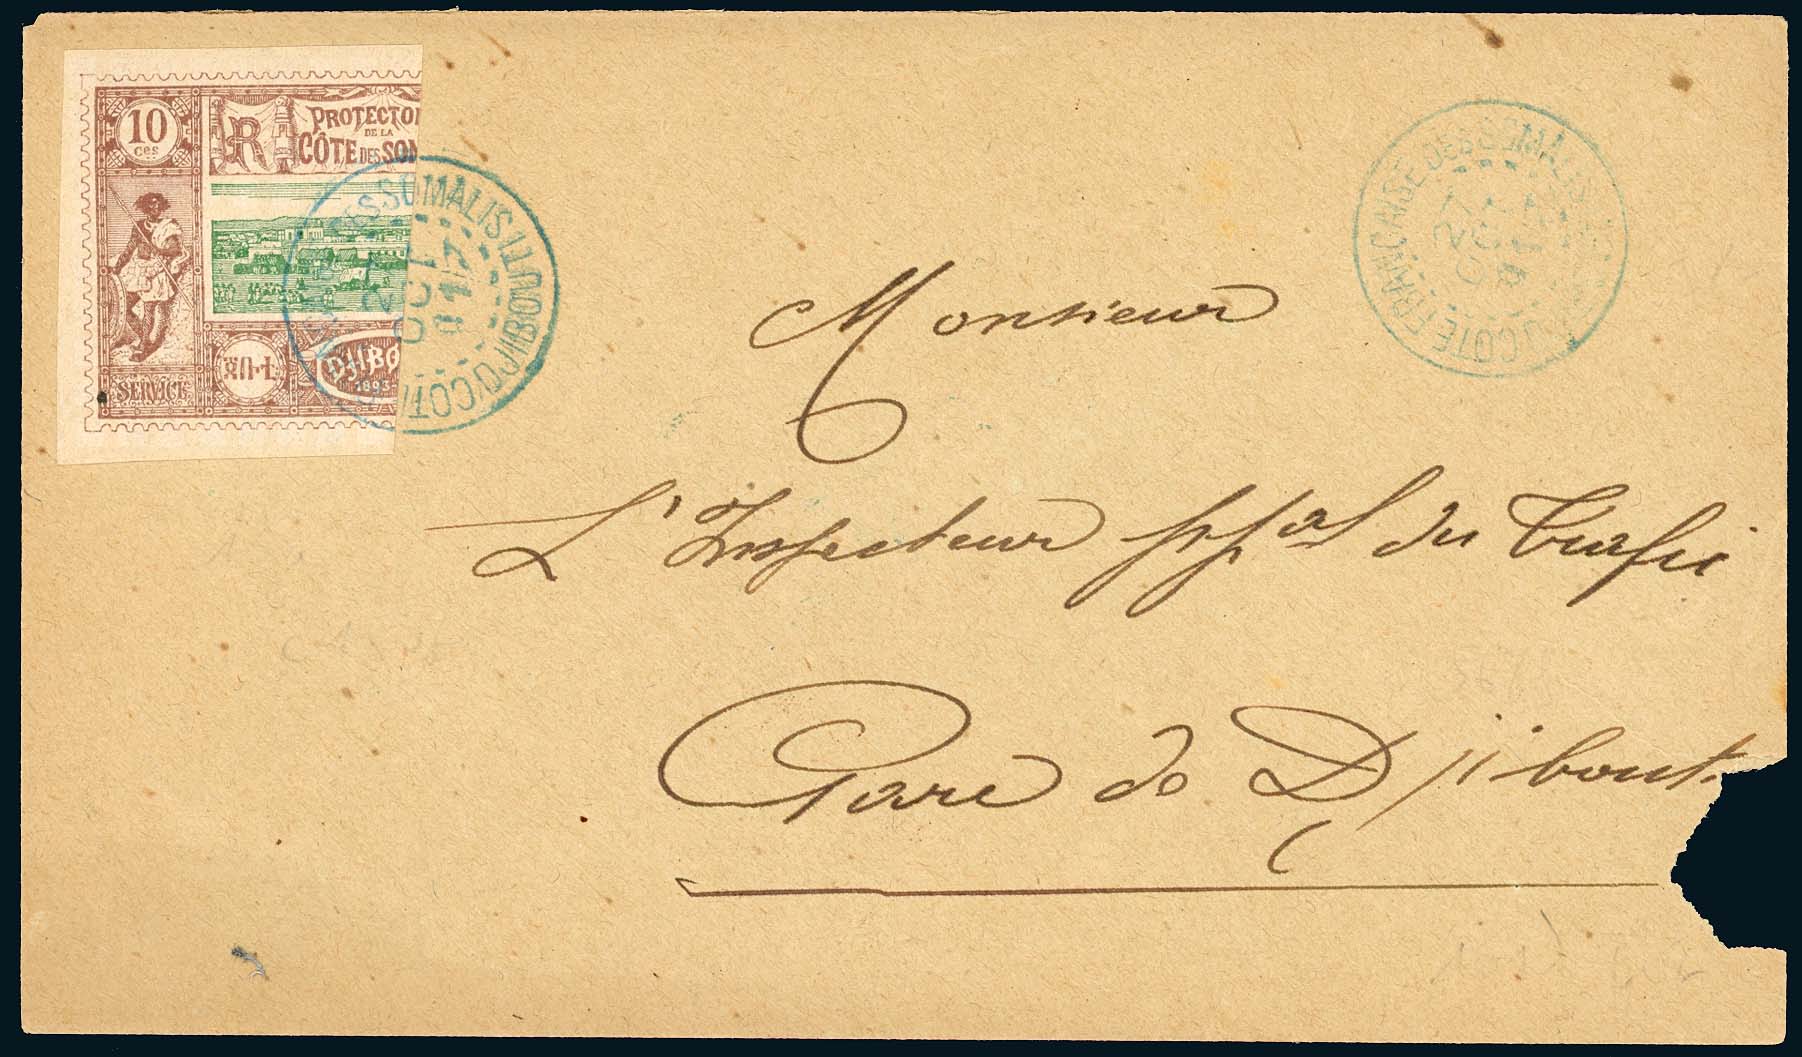 10
ces
R PROTECTO
DE LA
CÔTE DES SOM
SERVICE
DJIBO
1893
DES SOMALIS
DJIBOUTI
OCT
CÔTE FRANÇAISE DES SOMALIS
Monsieur
L'Inspecteur ppal du Trafic
Gare de Djibouti